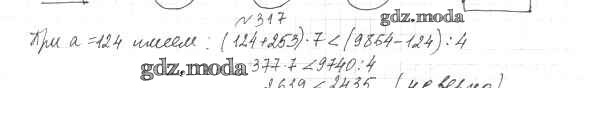 №317
gdz.moda
При a=124 имеем: (124+253)·7<(9864-124):4
gdz.moda 377·7<9740:4
2639<2435 (неверно)